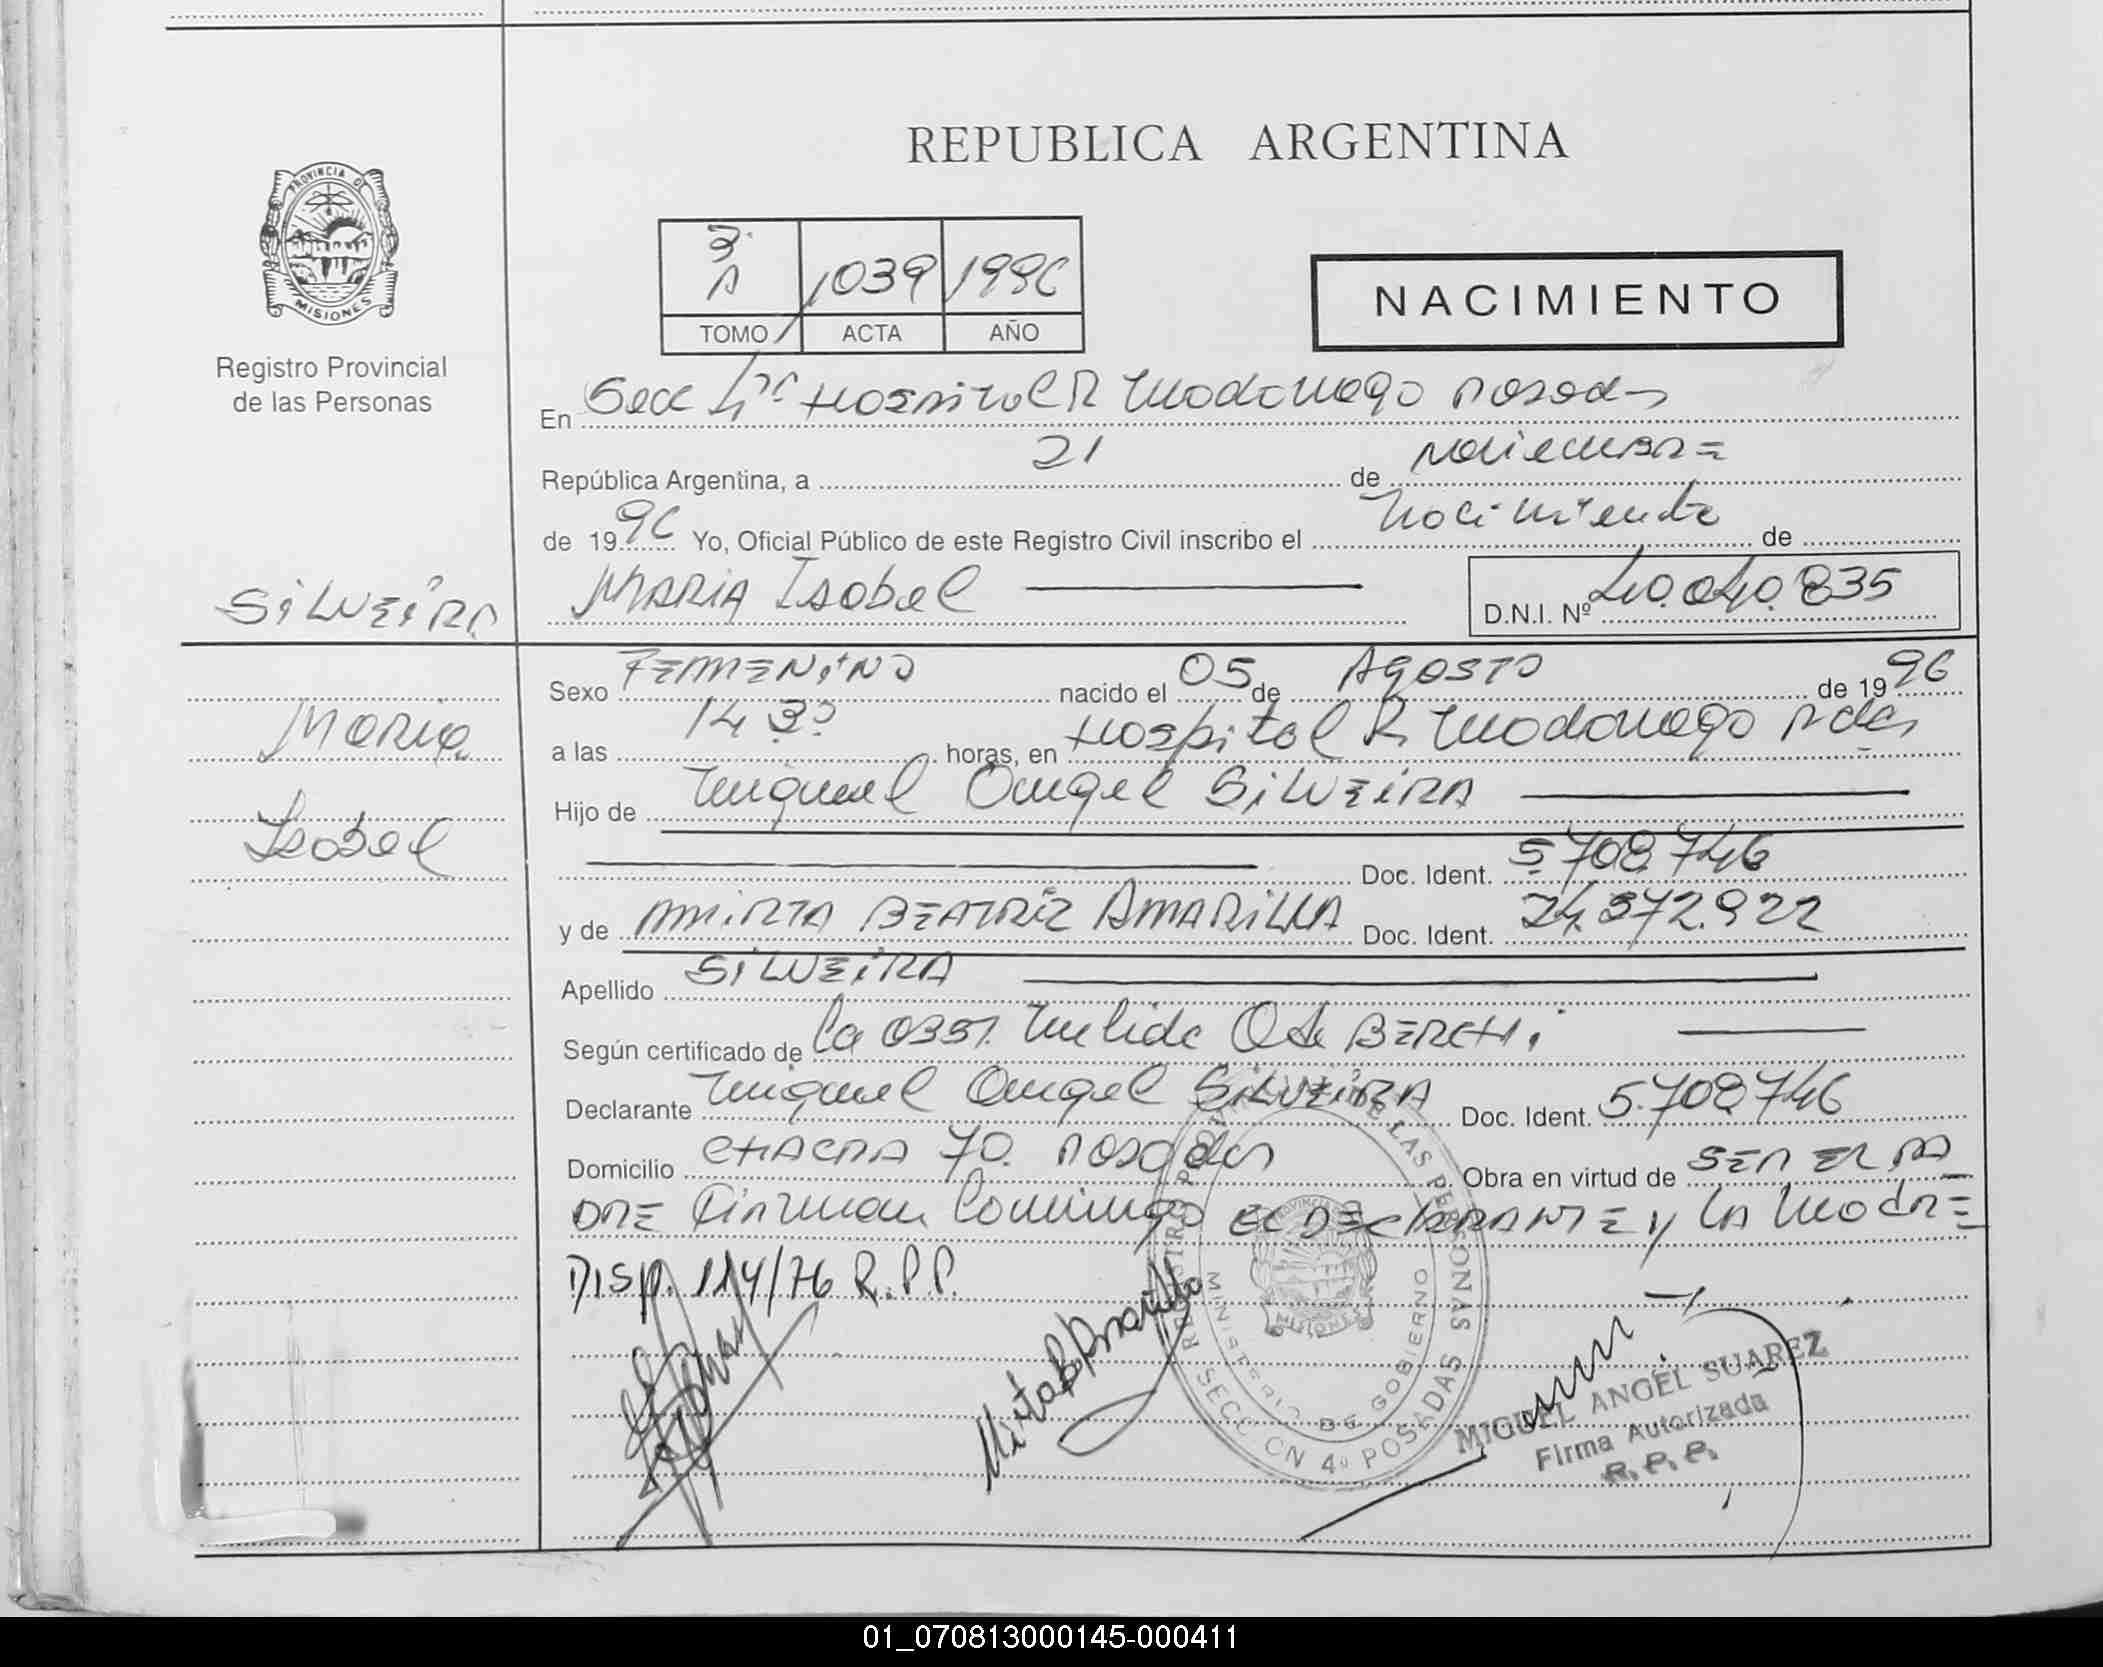 REPUBLICA ARGENTINA
PROVINCIA DE
MISIONES
Registro Provincial
de las Personas
3º
A 1039 1996
TOMO ACTA AÑO
NACIMIENTO
En Secc 4ta Hospital R Madariaga Posadas
República Argentina, a 21 de Noviembre
de 1996 Yo, Oficial Público de este Registro Civil inscribo el Nacimiento de
SILVEIRA
MARIA Isabel
D.N.I. Nº 40.040.835
Maria
Isabel
Sexo FEMENINO nacido el 05 de AGOSTO de 1996
a las 14 30 horas, en Hospital R Madariaga Pdas
Hijo de Miguel Angel SILVEIRA
Doc. Ident. 5.708.746
y de MIRTA BEATRIZ AMARILLA Doc. Ident. 24.372.922
Apellido SILVEIRA
Según certificado de la Obst. Nelida BERCHI
Declarante Miguel Angel SILVEIRA Doc. Ident. 5.708.746
Domicilio CHACRA 70. Posadas Obra en virtud de SER EL PA
DRE Firman Conmigo EL DECLARANTE y LA Madre
DISP. 114/76 R.P.P.
Mirta B Amarilla
REGISTRO PROVINCIAL DE LAS PERSONAS
MINISTERIO DE GOBIERNO
PROVINCIA
MISIONES
SECCION 4º POSADAS
MIGUEL ANGEL SUAREZ
Firma Autorizada
R. P. P.
01_070813000145-000411